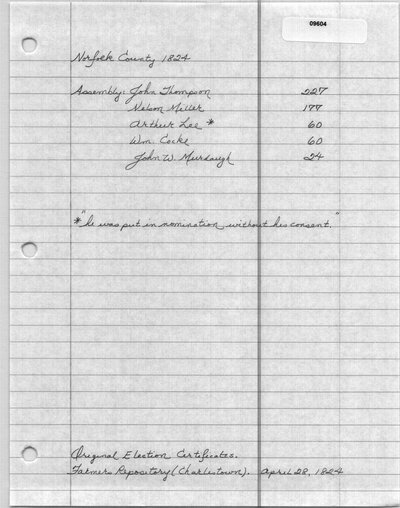 09604
Norfolk County 1824
Assembly: John Thompson 227
Nelson Miller 177
Arthur Lee * 60
Wm. Cocke 60
John W. Murdaugh 24
* "he was put in nomination without his consent."
Original Election Certificates.
Farmers Repository (Charlestown). April 28, 1824